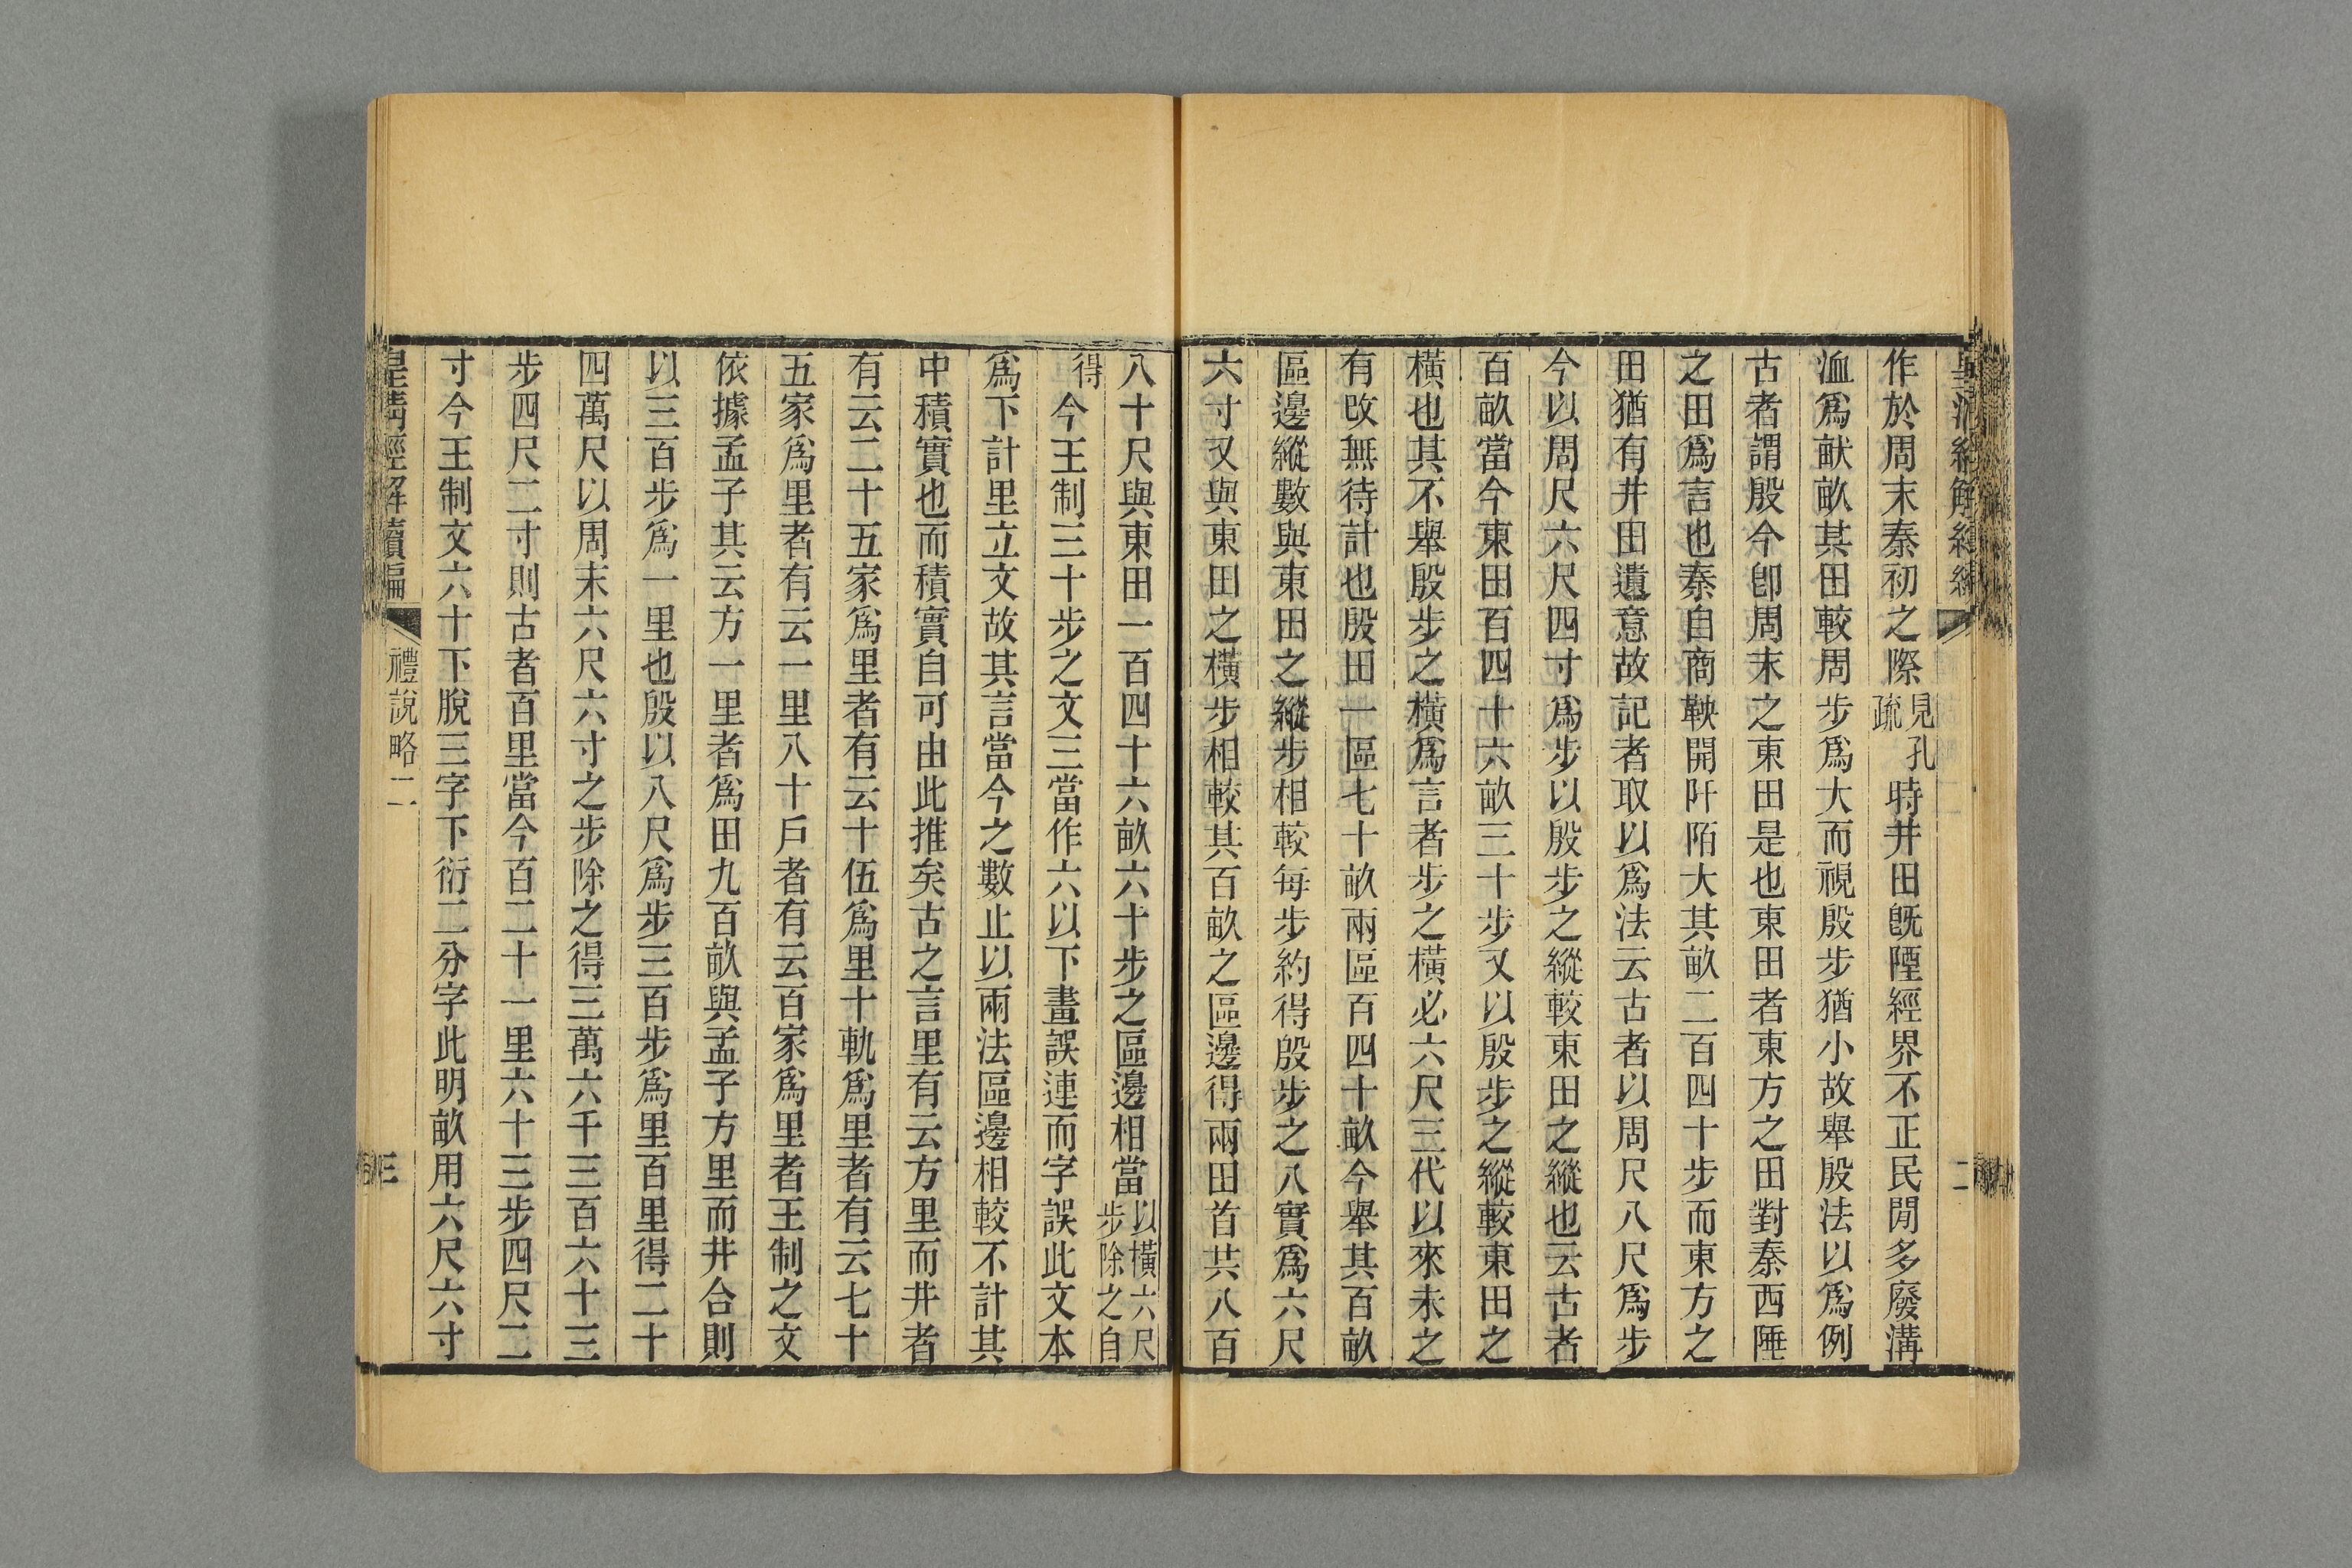 作於周末秦初之際見孔疏時井田旣陻經界不正民閒多廢溝
洫爲畎畝其田較周步爲大而視殷步猶小故舉殷法以爲例
古者謂殷今卽周末之東田是也東田者東方之田對秦西陲
之田爲言也秦自商鞅開阡陌大其畝二百四十步而東方之
田猶有井田遺意故記者取以爲法云古者以周尺八尺爲步
今以周尺六尺四寸爲步以殷步之縱較東田之縱也云古者
百畝當今東田百四十六畝三十步又以殷步之縱較東田之
橫也其不舉殷步之橫爲言者步之橫必六尺三代以來未之
有改無待計也殷田一區七十畝兩區百四十畝今舉其百畝
區邊縱數與東田之縱步相較每步約得殷步之八實爲六尺
六寸又與東田之橫步相較其百畝之區邊得兩田首共八百
八十尺與東田一百四十六畝六十步之區邊相當以橫六尺步除之自
得今王制三十步之文三當作六以下畫誤連而字誤此文本
爲下計里立文故其言當今之數止以兩法區邊相較不計其
中積實也而積實自可由此推矣古之言里有云方里而井者
有云二十五家爲里者有云十伍爲里十軌爲里者有云七十
五家爲里者有云一里八十戶者有云百家爲里者王制之文
依據孟子其云方一里者爲田九百畝與孟子方里而井合則
以三百步爲一里也殷以八尺爲步三百步爲里百里得二十
四萬尺以周末六尺六寸之步除之得三萬六千三百六十三
步四尺二寸則古者百里當今百二十一里六十三步四尺二
寸今王制文六十下脫三字下衍二分字此明畝用六尺六寸
皇清經解續編
禮說略二
三